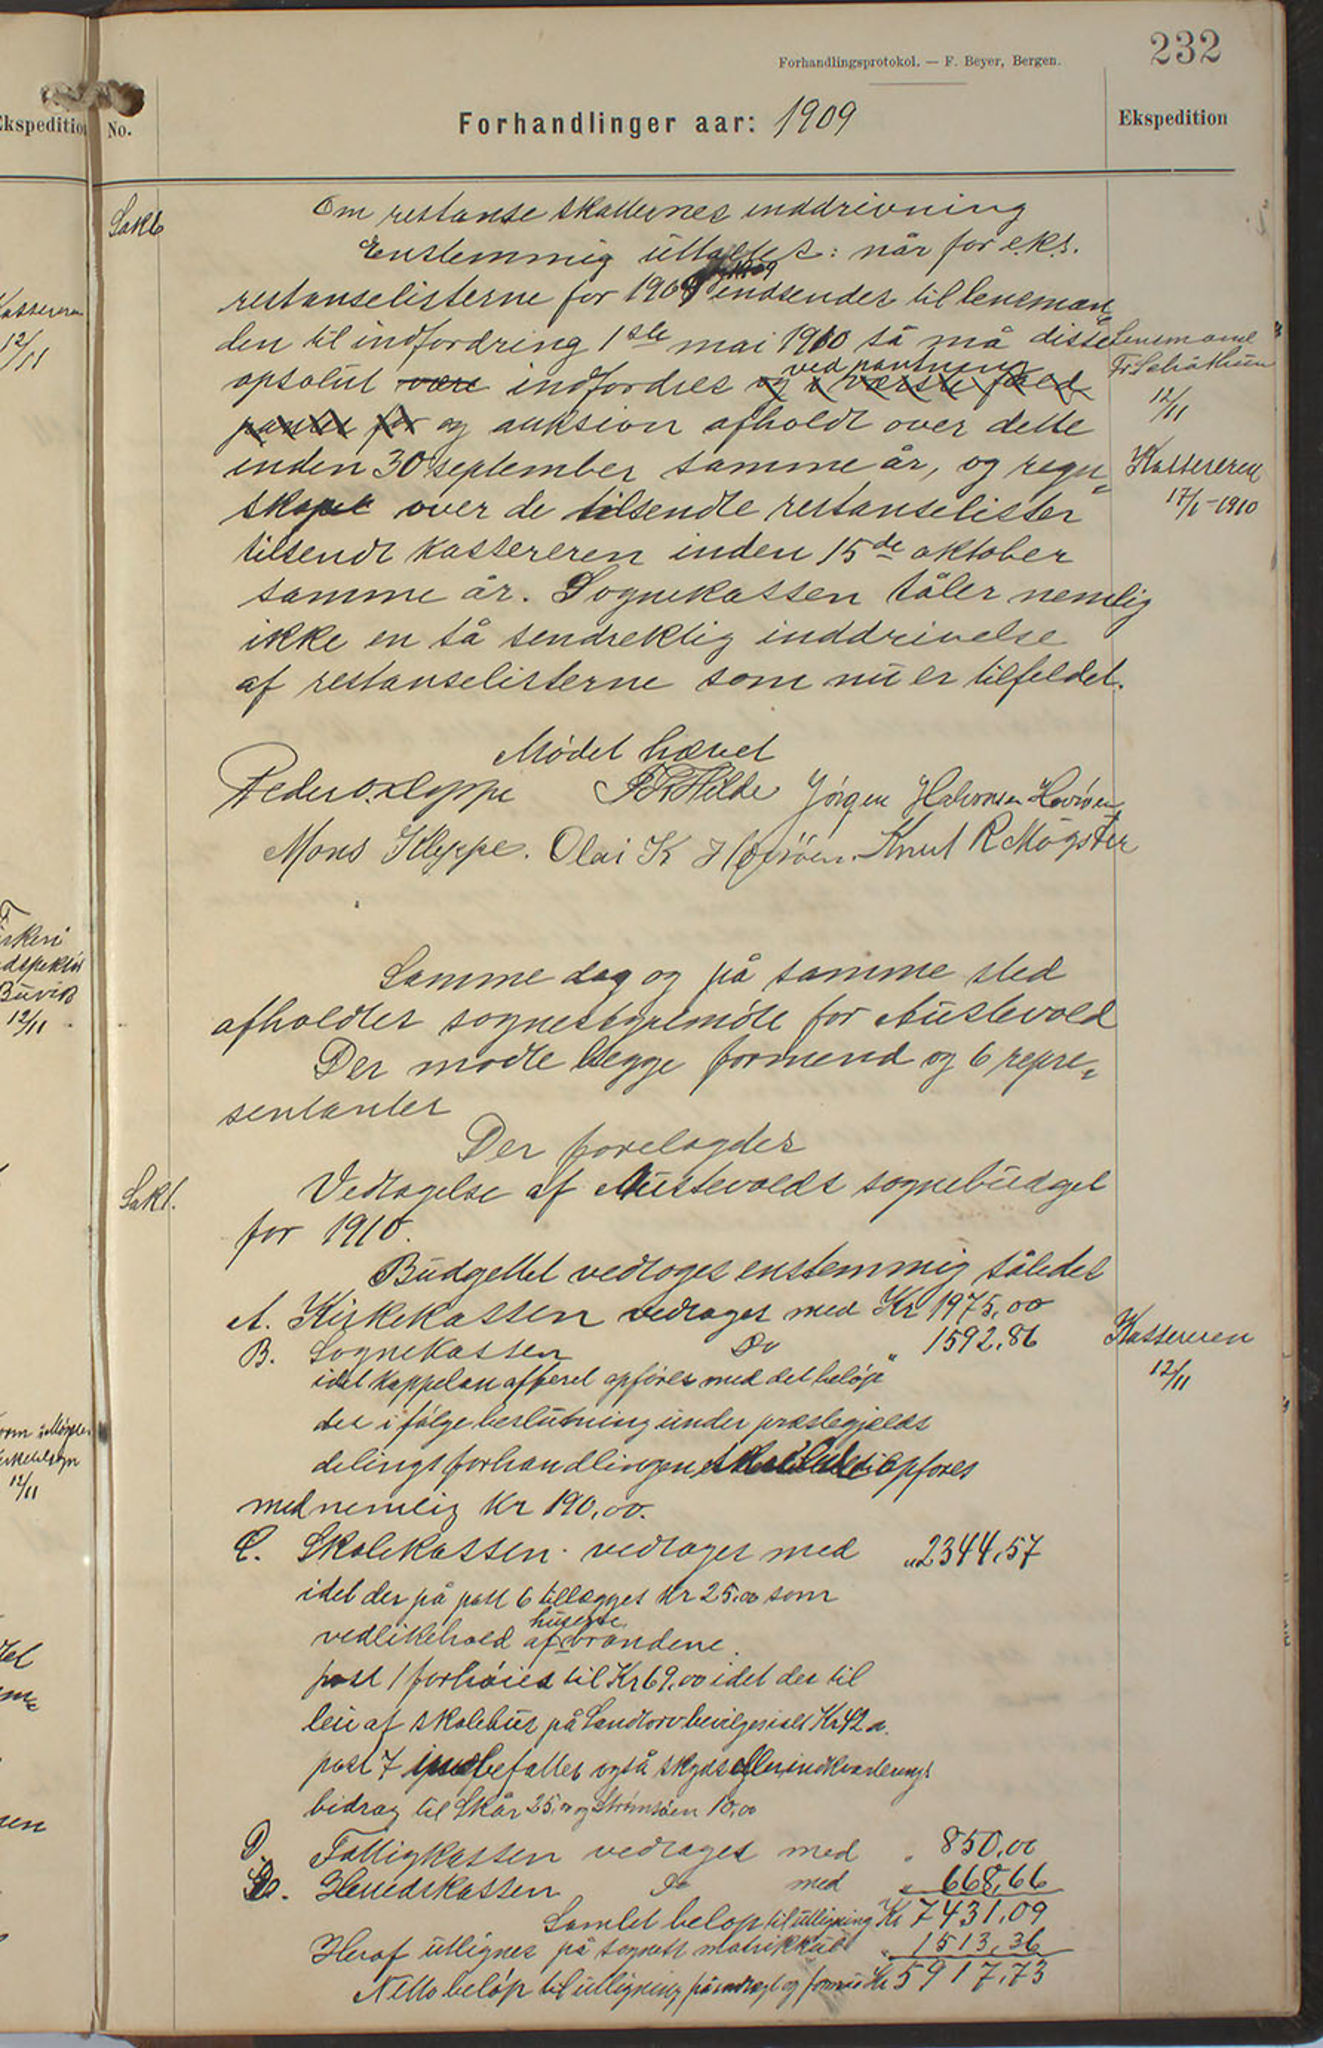 232
Forhandlingsprotokol. — F. Beyer, Bergen.
Ekspedition No.
Forhandlinger aar: 1909
Ekspedition
Sak 6
Om restanse skatternes inddrivning
Enstemmig uttaltes: når for eks.
restanselisterne for 1909 indsendes til lensman„
den til indfordring 1ste mai 1910 så må disse
opsolut være indfordres og i værste fald
ved pantning
pantes for og auksion afholdt over dette
inden 30 september samme år, og regn„
skapet over de tilsendte restanselister
tilsendt kassereren inden 15de oktober
samme år. Sognekassen tåler nemlig
ikke en så sendrektig inddrivelse
af restanselisterne som nu er tilfeldet.
Lensmand
Fr Schøthun
12/11
Kassereren
17/1-1910
Mødet hævet
Peder O. Kleppe
Hilde Jørgen Halvorsen Hovøen
Mons Kleppe. Olai K Hovøen. Knut R Møgster
Samme dag og på samme sted
afholdtes sognestyremøte for Austevold
Der møtte begge formend og 6 repre„
sentanter
Der forelagdes
Sak 1.
Vedtagelse af Austevolds sognebudget
for 1910.
Budgettet vedtoges enstemmig således
A. Kirkekassen vedtages med Kr 1975,00
B. Sognekassen Do " 1592,86
idet kappelan afheret opføres med det beløp
der i følge beslutning under prestegjelds
delingsforhandlingen skulde opføres
med nemlig Kr 190,00.
Kassereren
12/11
C. Skolekassen vedtages med „ 2344,57
idet der på post 6 tillægges Kr 25,00 som
vedlikehold af husene brandene.
post 1 forhøies til Kr 69.00 idet der til
leie af skolehus på Sandtorv bevilges ialt Kr 42
post 7 indbefattes også skyds eller indkvarterings
bidrag til Skår 25,00 og Strømsøen 10,00
D. Fattigkassen vedtages med „ 850,00
Herredskassen do med „ 668,66
Samlet beløp til utligning Kr 7431,09
Heraf utlignes på sognets matrikkul „ 1513,36
Netto beløp til utligning på indtægt og formue Kr 5917,73